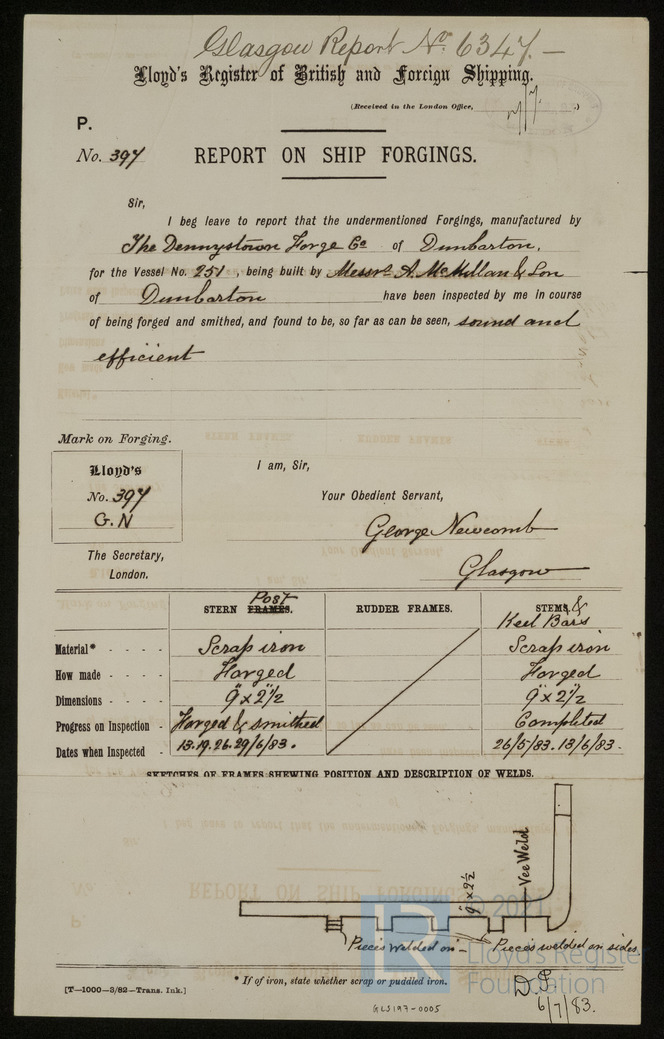 Glasgow Report No. 6347.—
Lloyd's Register of British and Foreign Shipping.
(Received in the London Office, 7/7. )
P.
No. 397
REPORT ON SHIP FORGINGS.
Sir,
I beg leave to report that the undermentioned Forgings, manufactured by
The Dennystown Forge Co of Dumbarton,
for the Vessel No. 251, being built by Messrs. A. McMillan & Son
of Dumbarton have been inspected by me in course
of being forged and smithed, and found to be, so far as can be seen, sound and
efficient
Mark on Forging.
Lloyd's
No. 397
G.N
I am, Sir,
Your Obedient Servant,
George Newcomb
Glasgow
The Secretary,
London.
STERN FRAMES. Post
RUDDER FRAMES.
STEMS, &
Keel Bars
Material* - - - - Scrap iron Scrap iron
How made - - - - Forged Forged
Dimensions - - - - 9" x 2"1/2 9" x 2"1/2
Progress on Inspection - Forged & smithed Completed
Dates when Inspected - 13.19.26.29/6/83. 26/5/83. 13/6/83.
SKETCHES OF FRAMES SHEWING POSITION AND DESCRIPTION OF WELDS.
Vee Weld
9" x 2 1/2
Pieces welded on — Pieces welded on sides.
* If of iron, state whether scrap or puddled iron.
[T—1000—3/82—Trans. Ink.]
6/7/83.
GLS197-0005
© 2021
LR
Lloyd's Register
Foundation